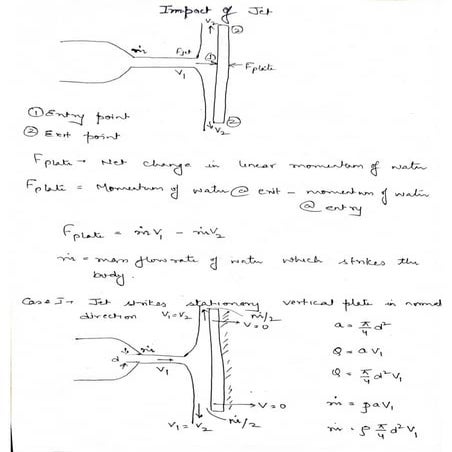 Impact of Jet
V₂
②
ṁ
Fjet
①
Fplate
V₁
②
V₂
① Entry point
② Exit point
Fplate → Net change in linear momentum of water
Fplate = Momentum of water @ exit - momentum of water
@ entry
Fplate = ṁV₁ - ṁV₂
ṁ = mass flow rate of water which strikes the
body.
Case I → Jet strikes stationary vertical plate in normal
direction
V₁=V₂
ṁ/2
V=0
a = π/4 d²
ṁ
d
V₁
Q = aV₁
Q = π/4 d²V₁
V=0
ṁ = ρaV₁
V₁=V₂
ṁ/2
ṁ = ρ π/4 d²V₁